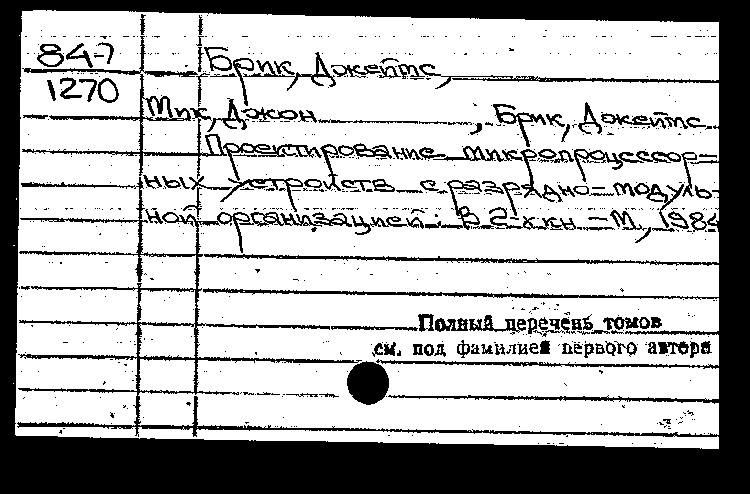 84-7
1270
Брик, Джеймс,
Мик, Джон , Брик, Джеймс
Проектирование микропроцессор=
ных устройств с разрядно-модуль-
ной организацией: В 2-х кн - М, 1984
Полный перечень томов
см. под фамилией первого автора